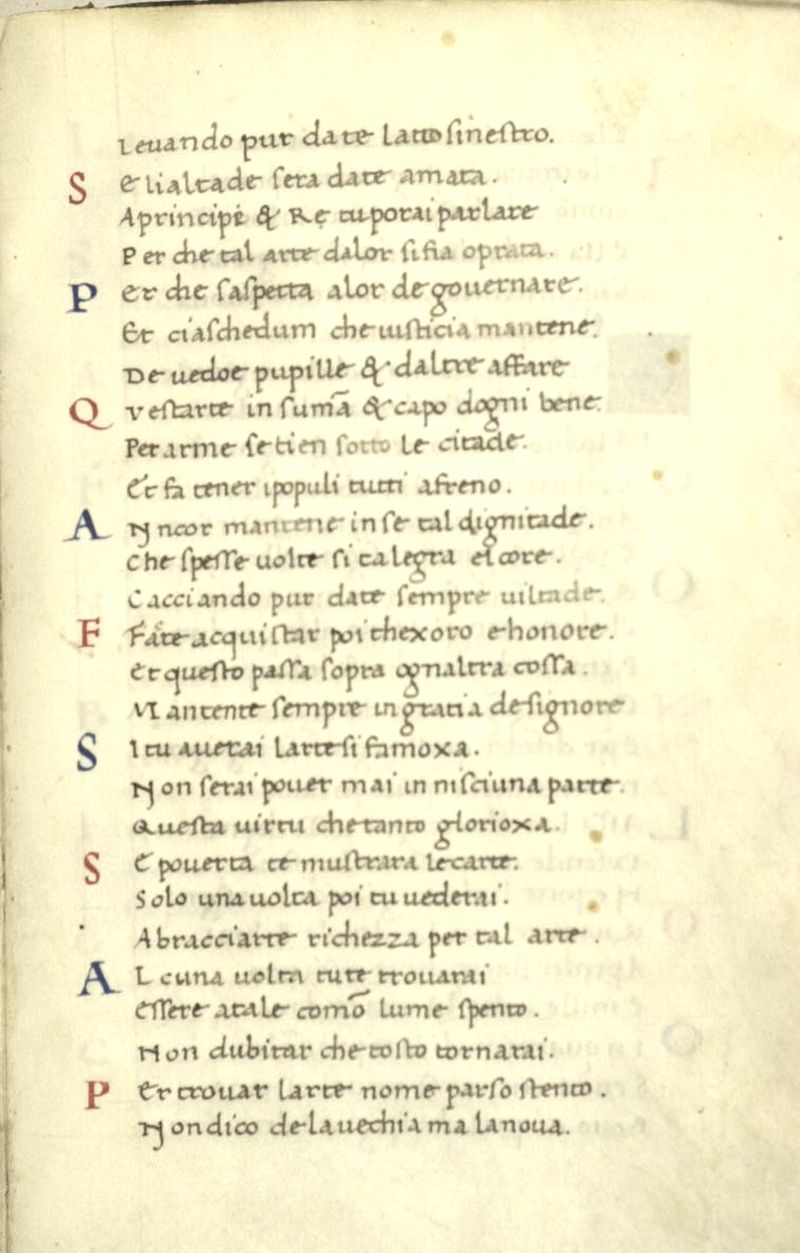 Leuando pur da te lato sinestro.
SE lialtade sera da te amata.
A principi & Re tu porai parlare
Per che tal arte da lor si fia oprata.
PEr che saspetta a lor de gouernare.
Et ciaschedum che iusticia mantene.
De uedoe pupille & daltre affare
QVestarte in sumā & capo dogni bene.
Per arme se tien sotto le citade.
Et fa tener i populi tutti a freno.
ANncor mantene in se tal dignitade.
Che spesse uolte si talegra el core.
Cacciando pur da te sempre uiltade.
FFate acquistar poi thexoro e honore.
Et questo passa sopra ognaltra cossa.
Mantente sempre in gratia de signore
SI tu auerai larte si famoxa.
Non serai pouer mai in nisciuna parte.
Questa uirtu che tanto glorioxa.
SE pouerta te mustrara le carte.
Solo una uolta poi tu uederai.
Abracciarte richezza per tal arte.
ALcuna uolta tu te trouarai
Essere a tale como lume spento.
Non dubitar che tosto tornarai.
PEr trouar larte nome parso stento.
Non dico de la uechia ma la noua.